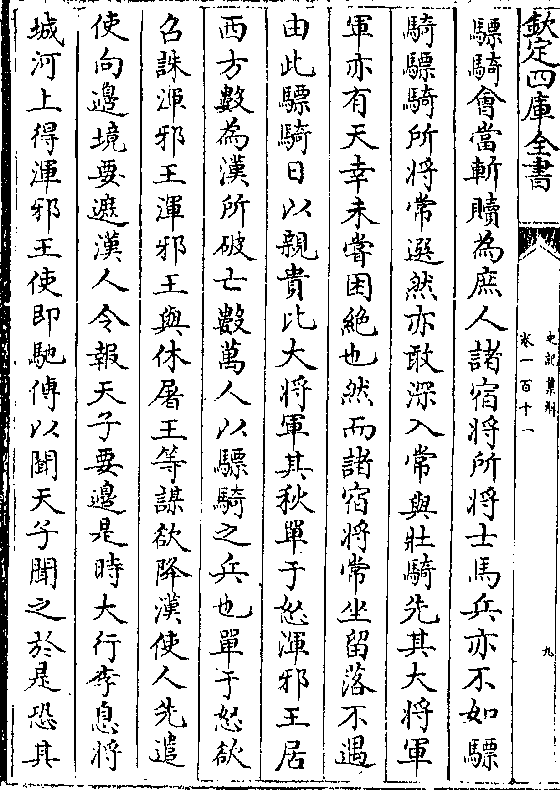 欽定四庫全書
史記集解
卷一百十一
九
驃騎會當斬贖為庶人諸宿將所將士馬兵亦不如驃
騎驃騎所將常選然亦敢深入常與壯騎先其大將軍
軍亦有天幸未嘗困絶也然而諸宿將常坐留落不遇
由此驃騎日以親貴比大將軍其秋單于怒渾邪王居
西方數為漢所破亡數萬人以驃騎之兵也單于怒欲
召誅渾邪王渾邪王與休屠王等謀欲降漢使人先遣
使向邊境要遮漢人令報天子要邊是時大行李息將
城河上得渾邪王使即馳傳以聞天子聞之於是恐其